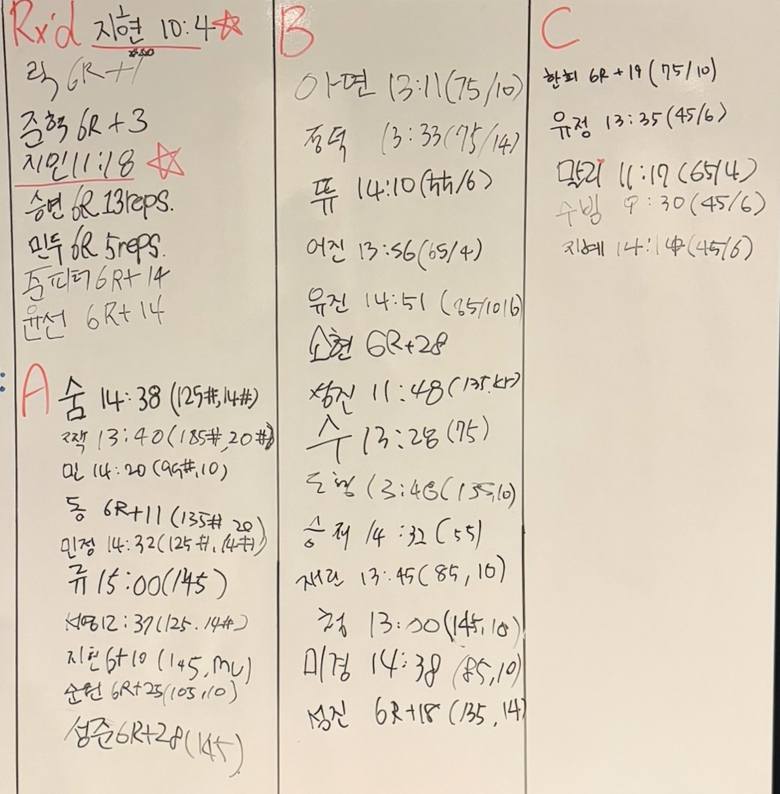 Rx'd 지현 10:4
락 6R+1
준혁 6R+3
지민 11:18
승변 6R 13reps.
민두 6R 5reps.
준피터 6R+14
윤선 6R+14
A 숨 14:38 (125#,14#)
13:40 (185#,20#)
민 14:20 (95#,10)
동 6R+11 (135# 20)
민정 14:32 (125#,14#)
류 15:00 (145)
서영 12:37 (125.14#)
지현 6+10 (145,MU)
순원 6R+25 (105,10)
성준 6R+28 (145)
B
아면 13:11 (75/10)
정덕 13:33 (75/14)
쮸 14:10
어진 13:56 (65/4)
유진 14:51
소현 6R+28
상진 11:48
수 13:28 (75)
도형 13:48 (135,10)
승혁 14:32 (55)
재란 13:45 (85,10)
13:00 (145,10)
미경 14:38 (85,10)
성진 6R+18 (135,14)
C
한희 6R+19 (75/10)
유정 13:35 (45/6)
말리 11:17 (65/4)
수빙 9:30 (45/6)
지혜 14:14 (45/6)